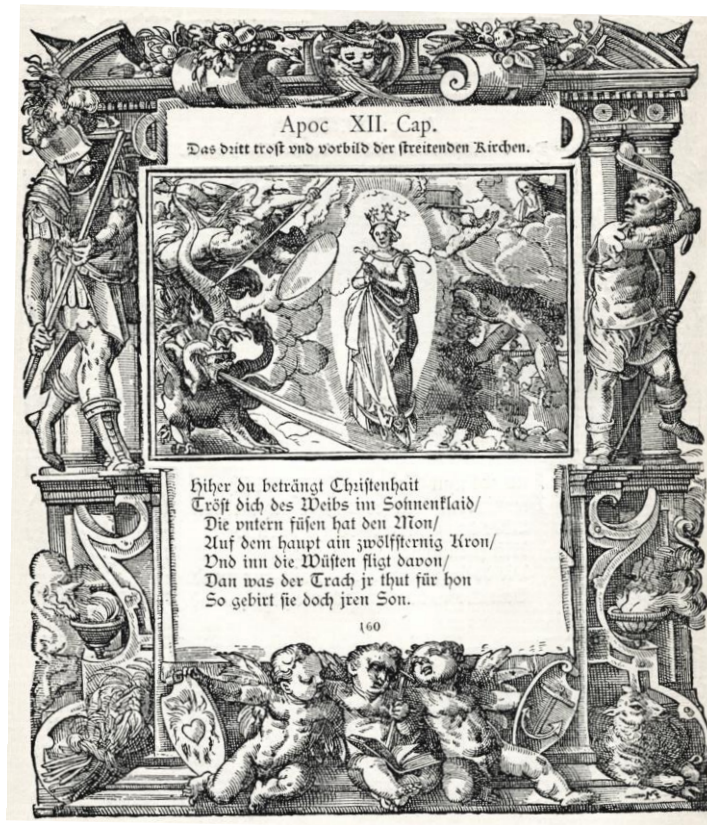 Apoc XII. Cap.
Das dritt trost vnd vorbild der streitenden Kirchen.
Hiher du beträngt Christenhait
Tröst dich des Weibs im Sonnenklaid/
Die vntern füsen hat den Mon/
Auf dem haupt ain zwölfsternig Kron/
Vnd inn die Wüsten fligt davon/
Dan was der Trach jr thut für hon
So gebirt sie doch jren Son.
160